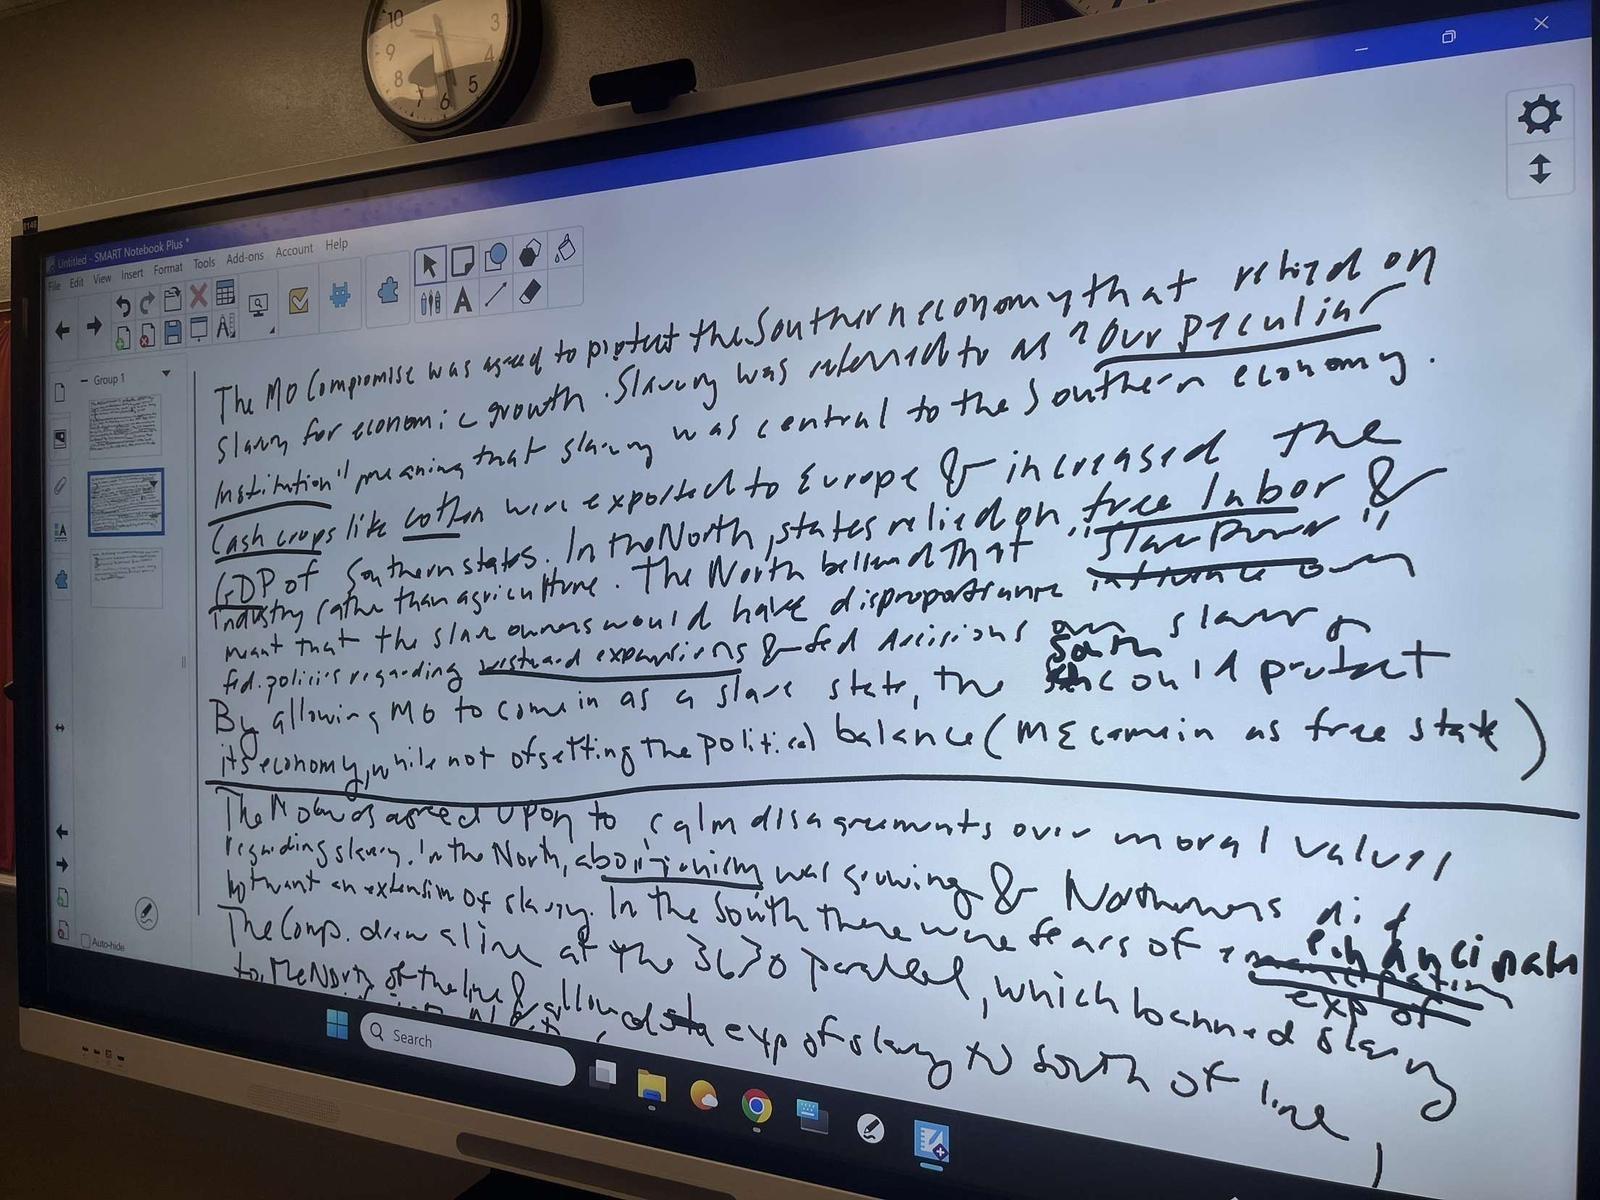 10
3
9
4
8
5
7
6
Untitled - SMART Notebook Plus *
File Edit View Insert Format Tools Add-ons Account Help
Group 1
The MO Compromise was agreed to protect the Southern economy that relied on
slavery for economic growth. Slavery was referred to as "Our peculiar
Institution" meaning that slavery was central to the Southern economy.
Cash crops like cotton were exported to Europe & increased the
GDP of Southern states. In the North, states relied on free labor &
industry rather than agriculture. The North believed that "Slave Power"
meant that the slave owners would have disproportionate over
fed. policies regarding westward expansions & fed decisions over slavery
By allowing MO to come in as a slave state, the South could protect
its economy, while not ofsetting the political balance (ME came in as free state)
The Mo was agreed upon to calm disagreements over moral values
regarding slavery. In the North, abolitionism was growing & Northerners did
not want an extension of slavery. In the South there were fears of
The Comp. drew a line at the 3630 parallel, which banned slavery
to the North of the line & allowed exp of slavery to South of line
exp of
Auto-hide
Search